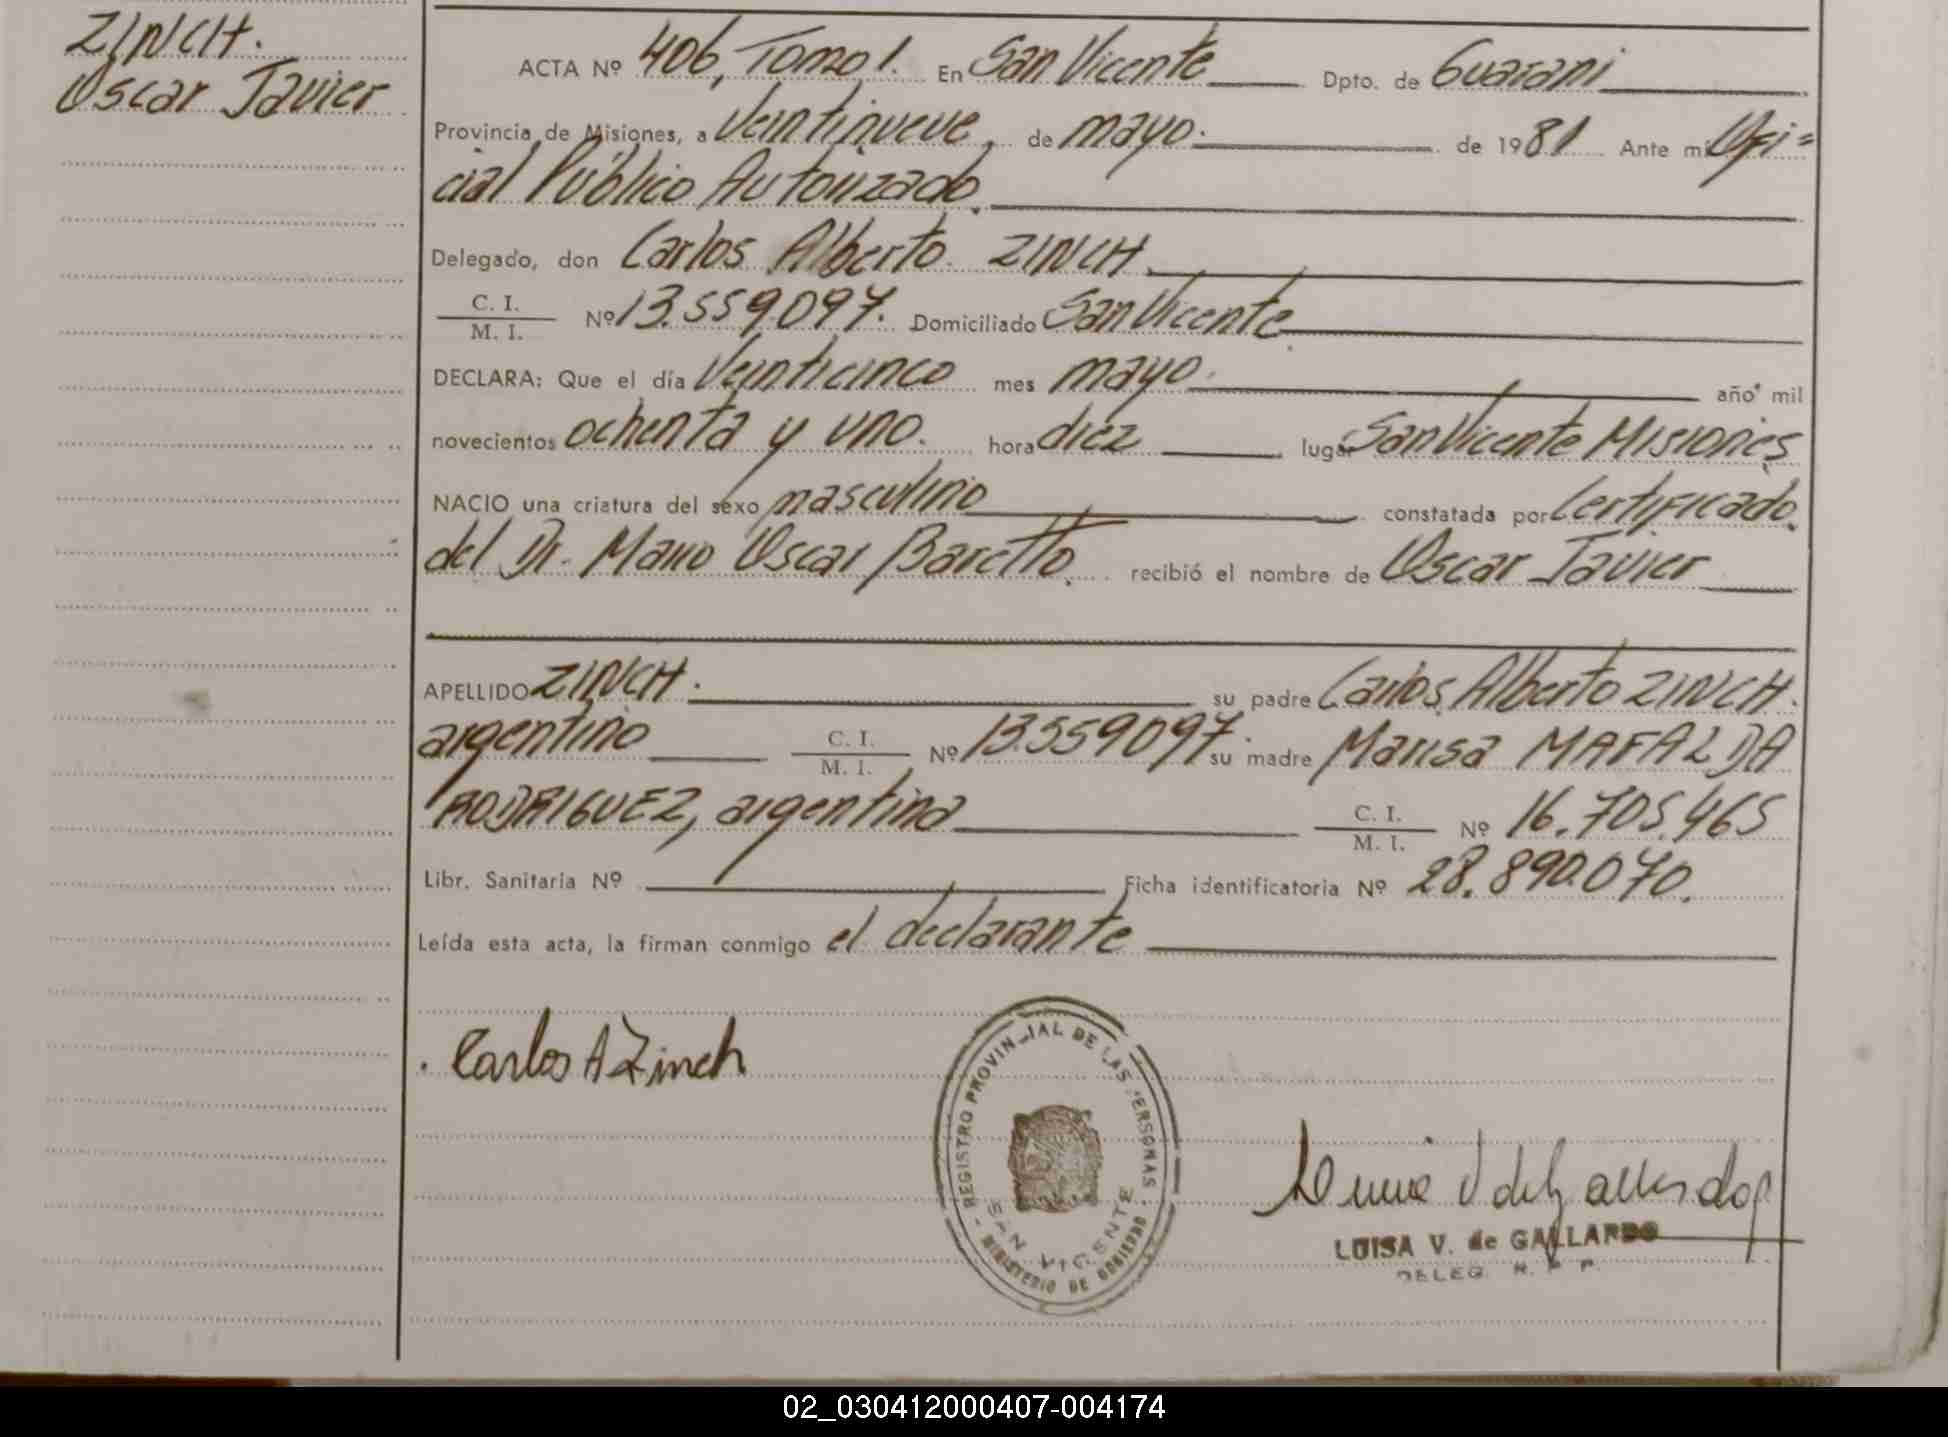 ZINCH.
Oscar Javier
ACTA Nº 406, Tomo 1. En San Vicente Dpto. de Guarani
Provincia de Misiones, a Veintinueve de mayo. de 1981 Ante mi Ofi=
cial Público Autorizado.
Delegado, don Carlos Alberto ZINCH
C. I.
M. I. Nº 13.559.097. Domiciliado San Vicente
DECLARA: Que el día Veinticinco mes mayo. año mil
novecientos ochenta y uno. hora diez lugar San Vicente Misiones
NACIO una criatura del sexo masculino constatada por Certificado
del Dr. Mario Oscar Baretto. recibió el nombre de Oscar Javier
APELLIDO ZINCH. su padre Carlos Alberto ZINCH.
argentino C. I.
M. I. Nº 13.559.097. su madre Marisa MAFALDA
RODRIGUEZ, argentina C. I.
M. I. Nº 16.705.465
Libr. Sanitaria Nº Ficha identificatoria Nº 28.890.070.
Leída esta acta, la firman conmigo el declarante
Carlos A Zinch
REGISTRO PROVINCIAL DE LAS PERSONAS
SAN VICENTE
MINISTERIO DE GOBIERNO
LUISA V. de GALLARDO
DELEG. R. P. P.
02_030412000407-004174